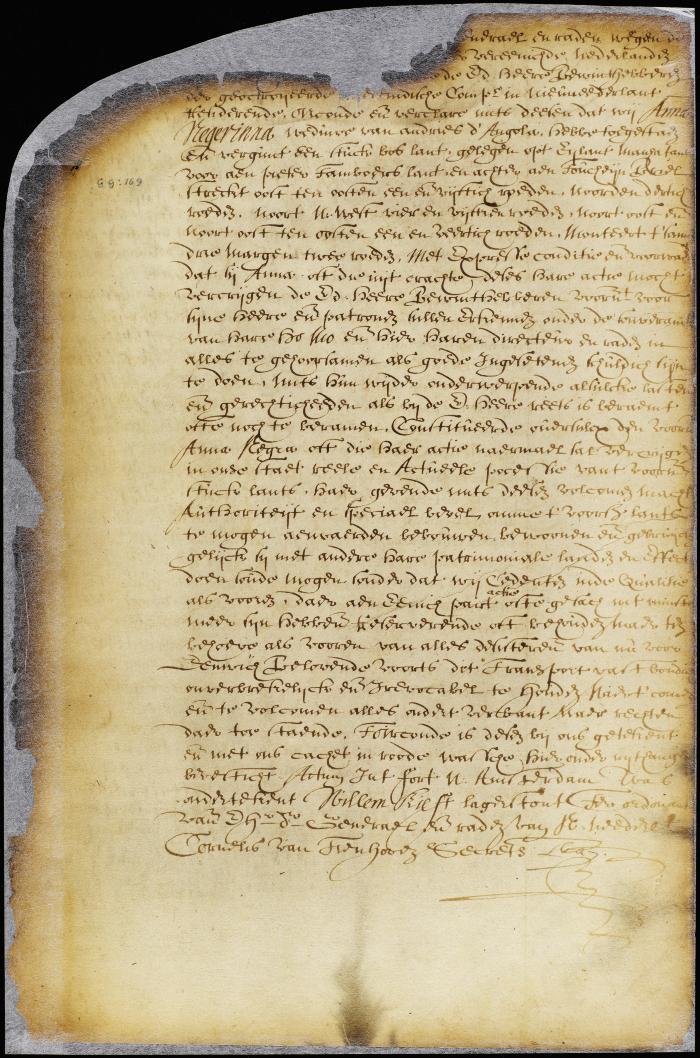 enerael en raden wegen de
vereenichde Nederlanden
de Ed. Heere Bewinthebberen
der geoctrojeerde Westindische Compe in Nieuneederlant
Residerende. Oirconde en verclare mits deesen dat wij Anna
GG: 169
Negerinna weduwe van Andries d'Angola, hebbe toegestaen
En vergunt een stuck bos lant, gelegen opt Eylant Manhatans
voor aen pieter Tamboers lant en achter aen
streckt oost ten oosten een en vijftich roeden, Noorden dertich
roeden, Noort N. West vier en vijftien roeden, Noort oost en
Noort oost ten oosten een en veertich roeden, Monteert t'samen
drie margen twee roeden, Met Expresse conditie en voorwaerde
dat sij Anna oft die uijt crachte deses hare actie mocht
vercrijgen de Ed. Heere Bewinthebberen voornt voor
sijne Heere en patronen sullen Erkennen onder de souverainiteyt
van hare Ho: Mo: en hier haren directeur en raden in
alles te gehoorsamen als goede Ingesetenen schuldich sijn
te doen, Mits hun wijders onderwerpende alsulcke lasten
en gerechticheeden als bij de E. Heere reets is beraemt
ofte noch te beramen. Constitueerde oversulcx den voorn
Anna Neger oft die haer actie naermael sal vercrijgen
in onse staet reele en Actueele possessie vant voorn
stuck lants, haer gevende mits deesen volcomen macht
Authoriteijt en speciael bevel, omme t voorsz lants
te mogen aenvaerden bebouwen, bewoonen en gebruijcken
gelijck sij met andere hare patrimoniale landen en effecten
doen soude mogen sonder dat wij Cedenten inde qualite
als vooren, daer aen Eenich part actie ofte gesach int minste
meer sijn hebben reserverende oft behouden maer ten
behoeve als vooren van alles desisteren van nu voor
Eeuwich Belovende voorts dit Transport vast bondich
onverbreekelijck en Irevocabel te houden Naert comen
en te volcomen alles ondert verbant Naer rechten
daer toe staende. T'Oirconde is desen bij ons geteekent
en met ons cachet in roode wassche, hier onder uythangende
bevesticht. Actum Int fort N: Amsterdam
onderteekent Willem Kieft lager stont Ter ordonnantie
van d'Hr dr Generael en raden van N. Neederlt
Cornelis van Tienhoven Secrets